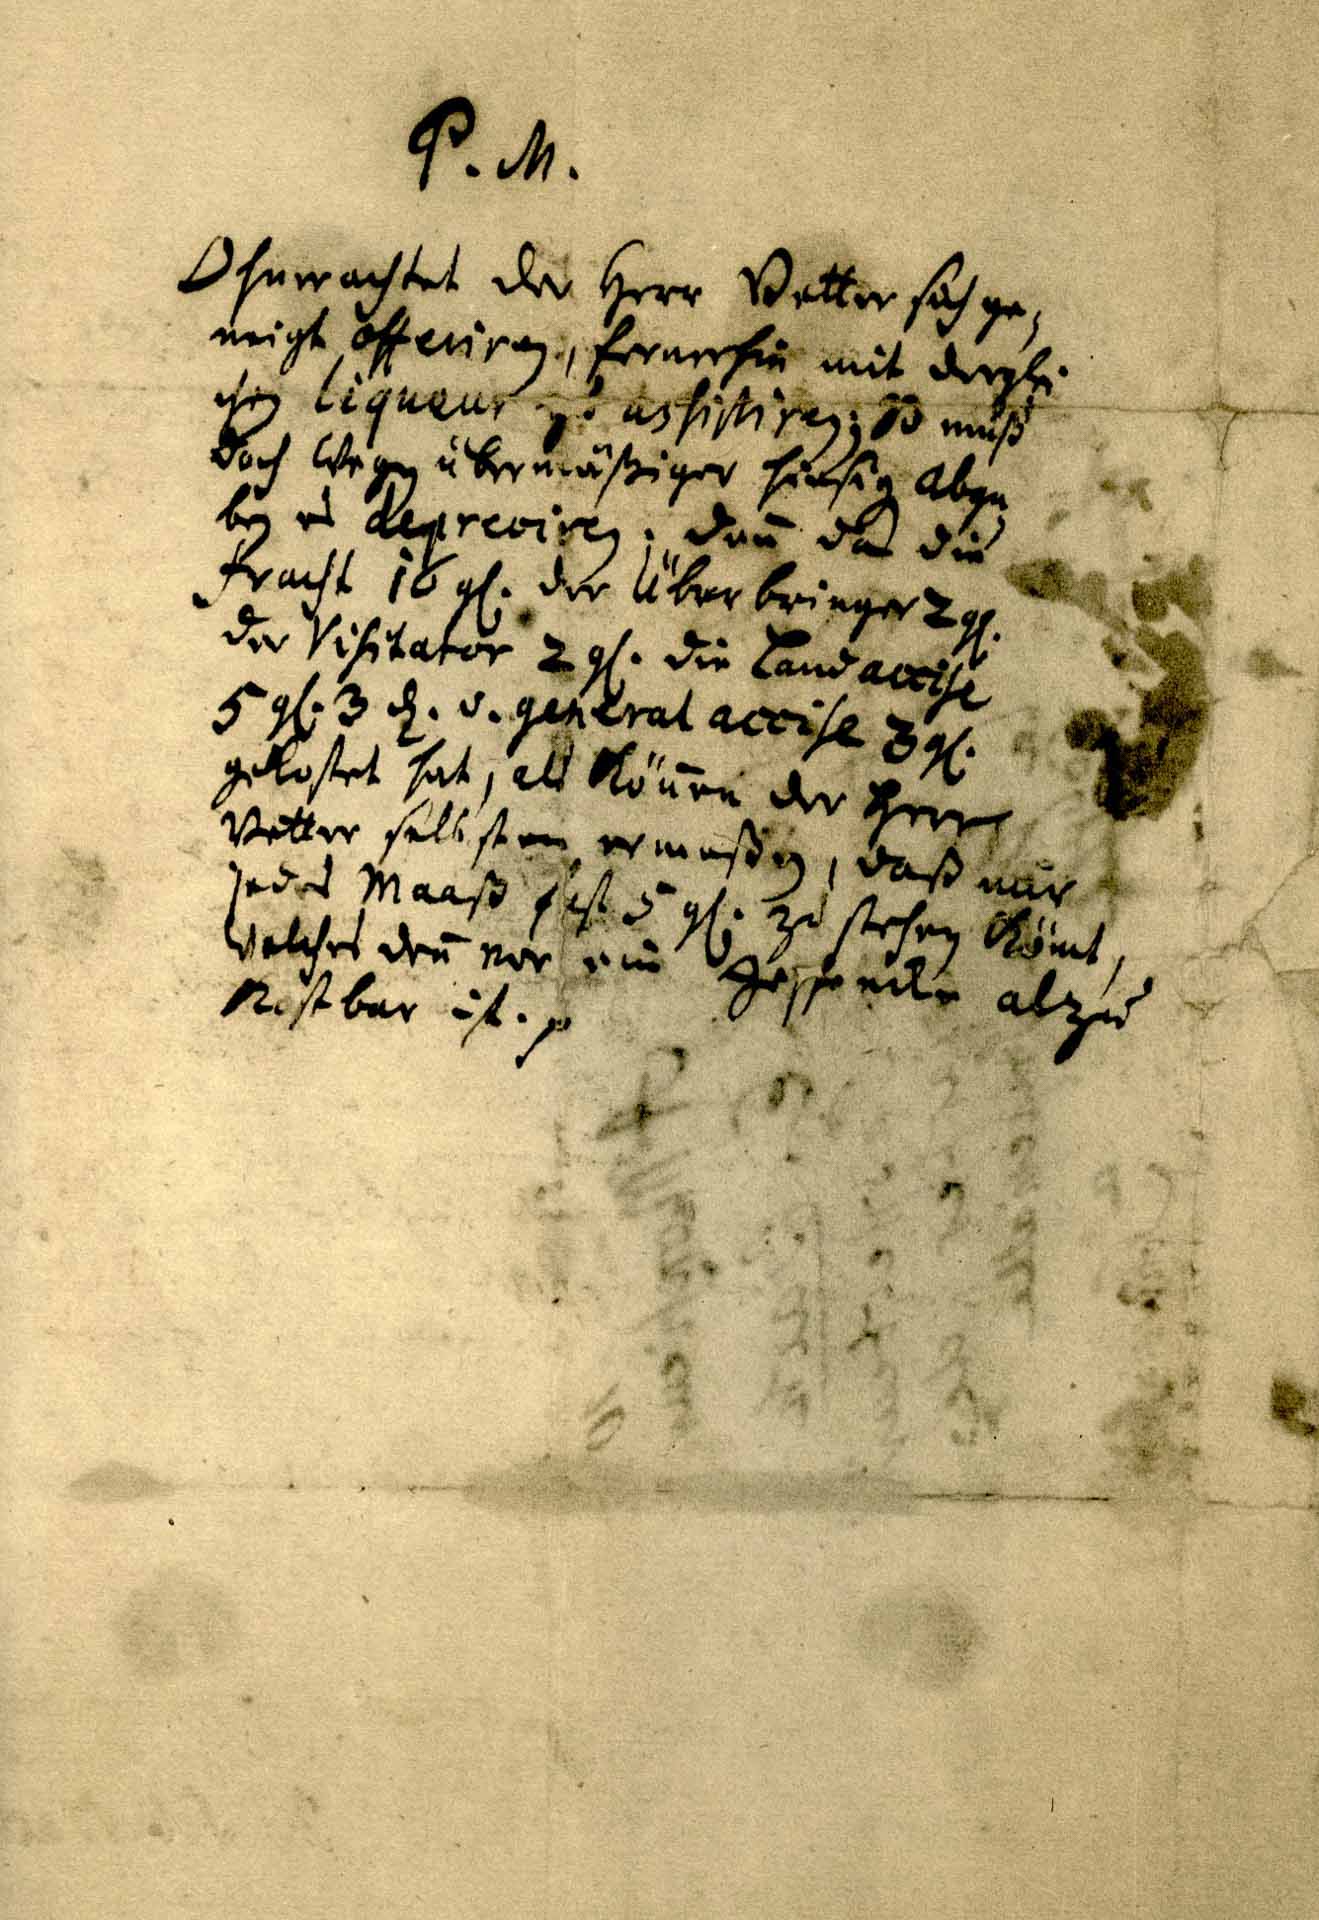 P. M.
Ohnerachtet der Herr Vetter sich ge-
neigt offeriren, fernerhin mit derglei-
chen liqueur zu assistiren; So muß
doch wegen übermäßiger hiesigen Abga-
ben es depreciren; denn da die
Fracht 16 gl. der Überbringer 2 gl.
der Visitator 2 gl. die Landaccise
5 gl. 3 ₰. u. general accise 3 gl.
gekostet hat, als können der Herr
Vetter selbsten ermeßen, daß mir
jedes Maaß fast 5 gl. zu stehen kömt,
welches denn vor ein Geschencke alzu
kostbar ist. p